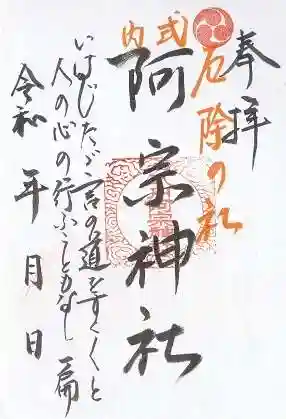 奉拝
厄除の社
式内
阿宗神社
いはじたゞ言の道をすくくと
人の心の行ふこともなし
令和 年 月 日